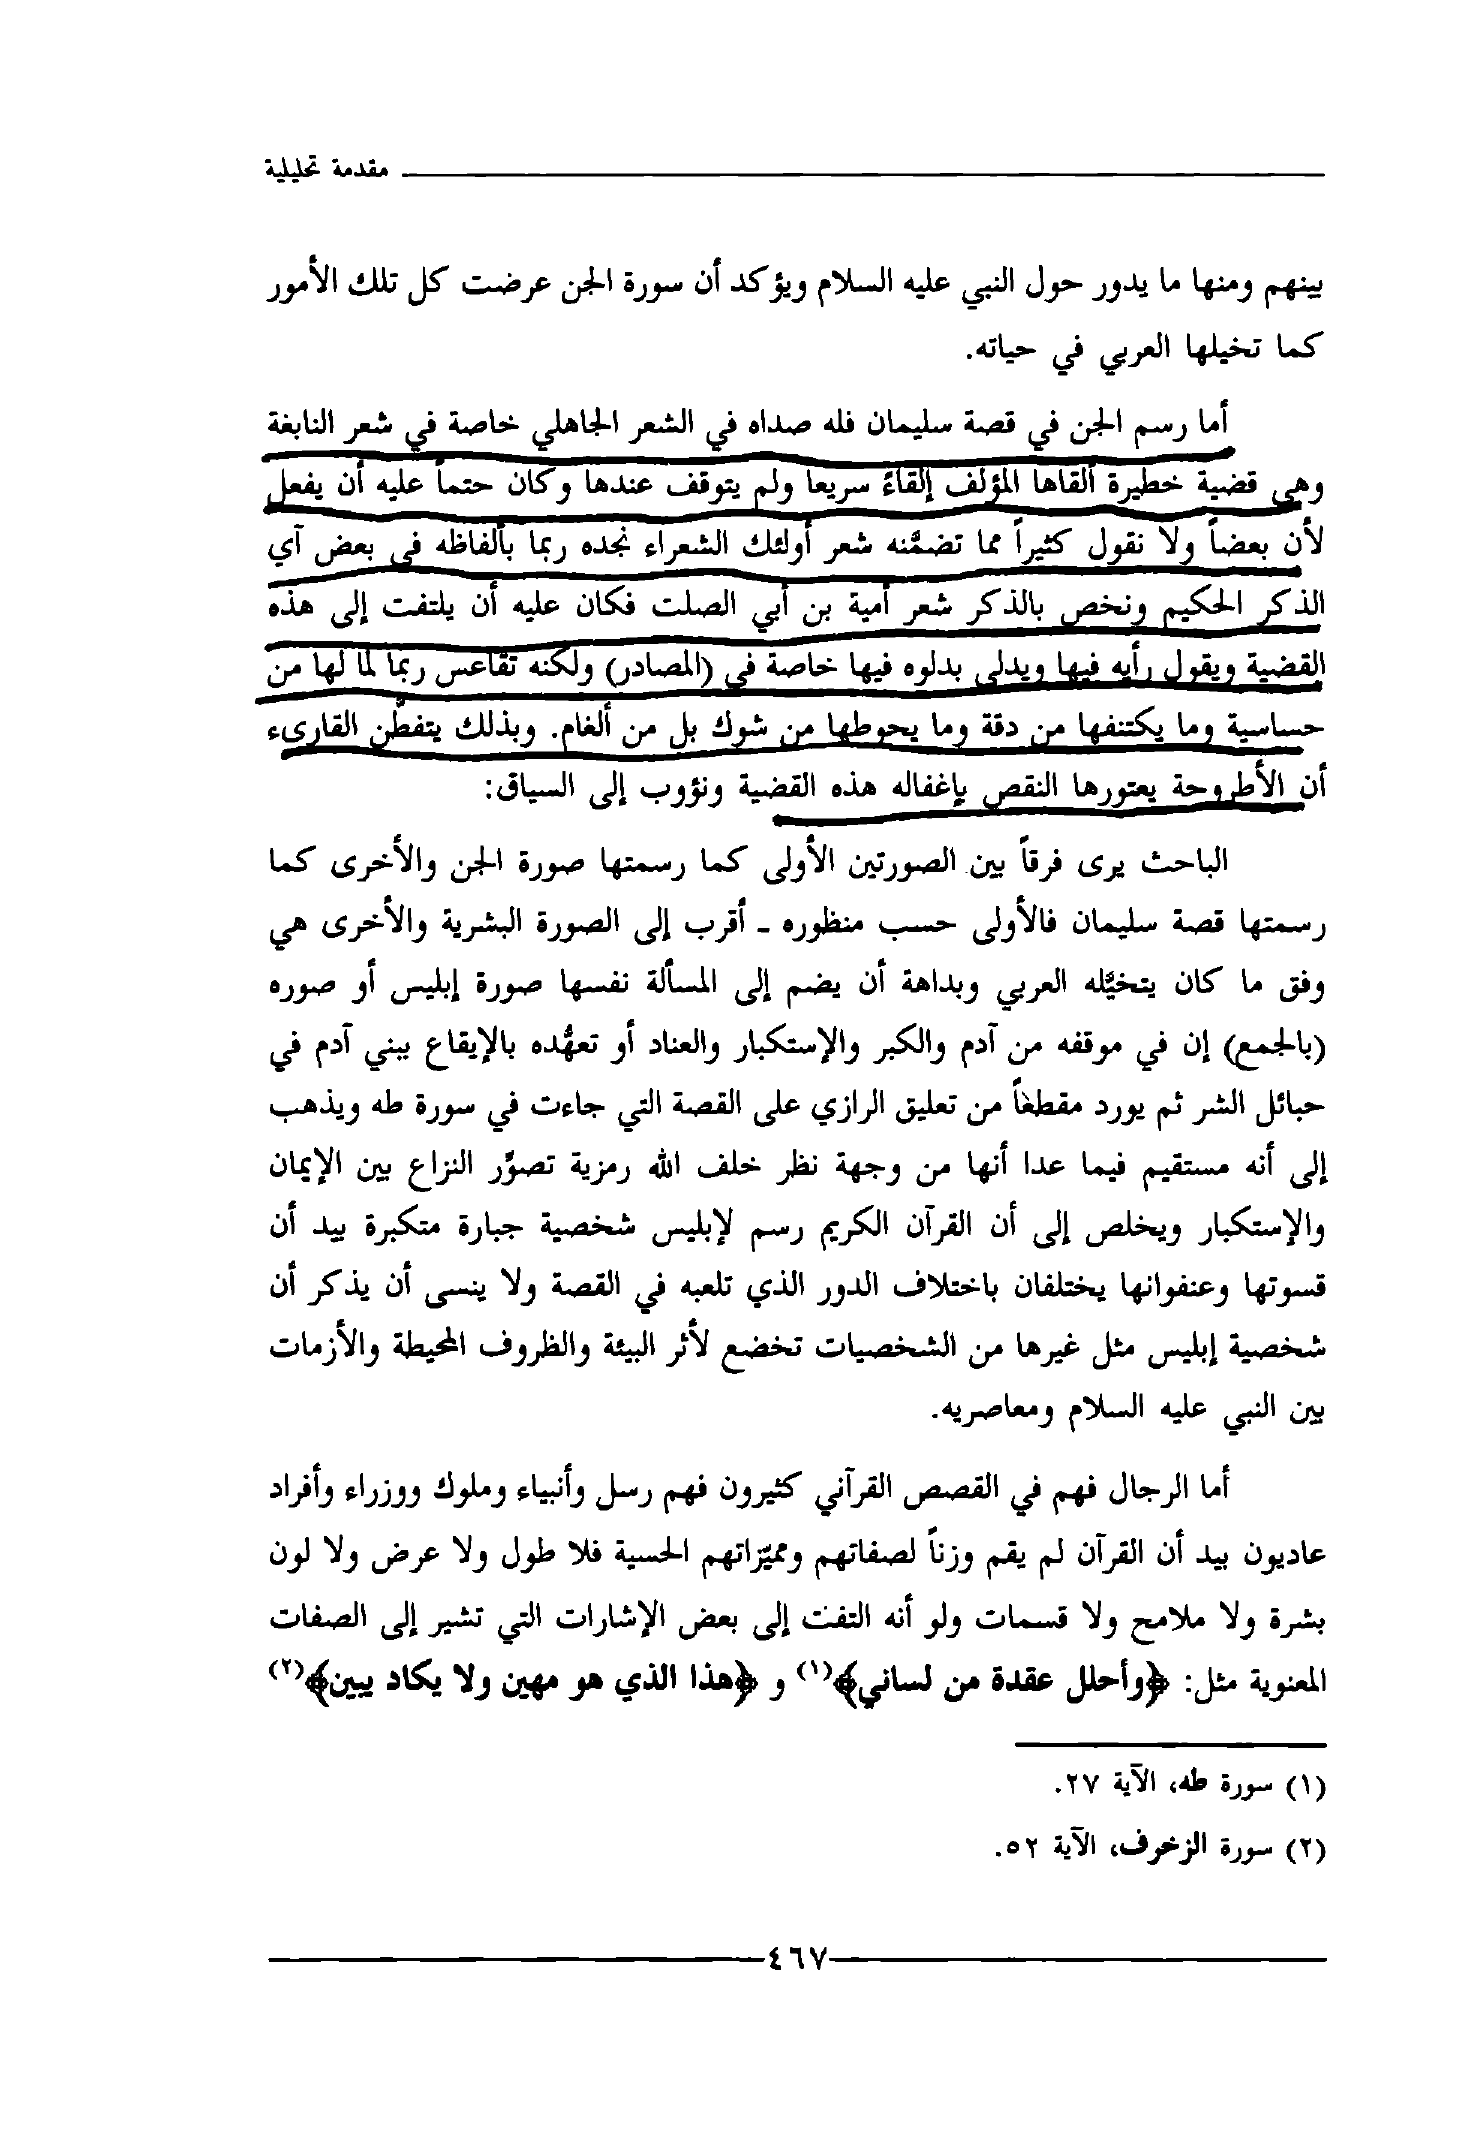 مقدمة تحليلية
بينهم ومنها ما يدور حول النبي عليه السلام ويؤكد أن سورة الجن عرضت كل تلك الأمور
كما تخيلها العربي في حياته.
أما رسم الجن في قصة سليمان فله صداه في الشعر الجاهلي خاصة في شعر النابغة
وهي قضية خطيرة ألقاها المؤلف إلقاءً سريعا ولم يتوقف عندها وكان حتماً عليه أن يفعل
لأن بعضاً ولا نقول كثيراً مما تضمَّنه شعر أولئك الشعراء نجده ربما بألفاظه في بعض آي
الذكر الحكيم ونخص بالذكر شعر أمية بن أبي الصلت فكان عليه أن يلتفت إلى هذه
القضية ويقول رأيه فيها ويدلي بدلوه فيها خاصة في (المصادر) ولكنه تقاعس ربما لما لها من
حساسية وما يكتنفها من دقة وما يحوطها من شوك بل من ألغام. وبذلك يتفطَّن القارىء
أن الأطروحة يعتورها النقص بإغفاله هذه القضية ونؤوب إلى السياق:
الباحث يرى فرقاً بين الصورتين الأولى كما رسمتها صورة الجن والأخرى كما
رسمتها قصة سليمان فالأولى حسب منظوره - أقرب إلى الصورة البشرية والأخرى هي
وفق ما كان يتخيَّله العربي وبداهة أن يضم إلى المسألة نفسها صورة إبليس أو صوره
(بالجمع) إن في موقفه من آدم والكبر والإستكبار والعناد أو تعهُّده بالإيقاع ببني آدم في
حبائل الشر ثم يورد مقطعاً من تعليق الرازي على القصة التي جاءت في سورة طه ويذهب
إلى أنه مستقيم فيما عدا أنها من وجهة نظر خلف الله رمزية تصوَّر النزاع بين الإيمان
والإستكبار ويخلص إلى أن القرآن الكريم رسم لإبليس شخصية جبارة متكبرة بيد أن
قسوتها وعنفوانها يختلفان باختلاف الدور الذي تلعبه في القصة ولا ينسى أن يذكر أن
شخصية إبليس مثل غيرها من الشخصيات تخضع لأثر البيئة والظروف المحيطة والأزمات
بين النبي عليه السلام ومعاصريه.
أما الرجال فهم في القصص القرآني كثيرون فهم رسل وأنبياء وملوك ووزراء وأفراد
عاديون بيد أن القرآن لم يقم وزناً لصفاتهم ومميّزاتهم الحسية فلا طول ولا عرض ولا لون
بشرة ولا ملامح ولا قسمات ولو أنه التفت إلى بعض الإشارات التي تشير إلى الصفات
المعنوية مثل: ﴿وأحلل عقدة من لساني﴾(١) و ﴿هذا الذي هو مهين ولا يكاد يبين﴾(٢)
(١) سورة طه، الآية ٢٧.
(٢) سورة الزخرف، الآية ٥٢.
٤٦٧